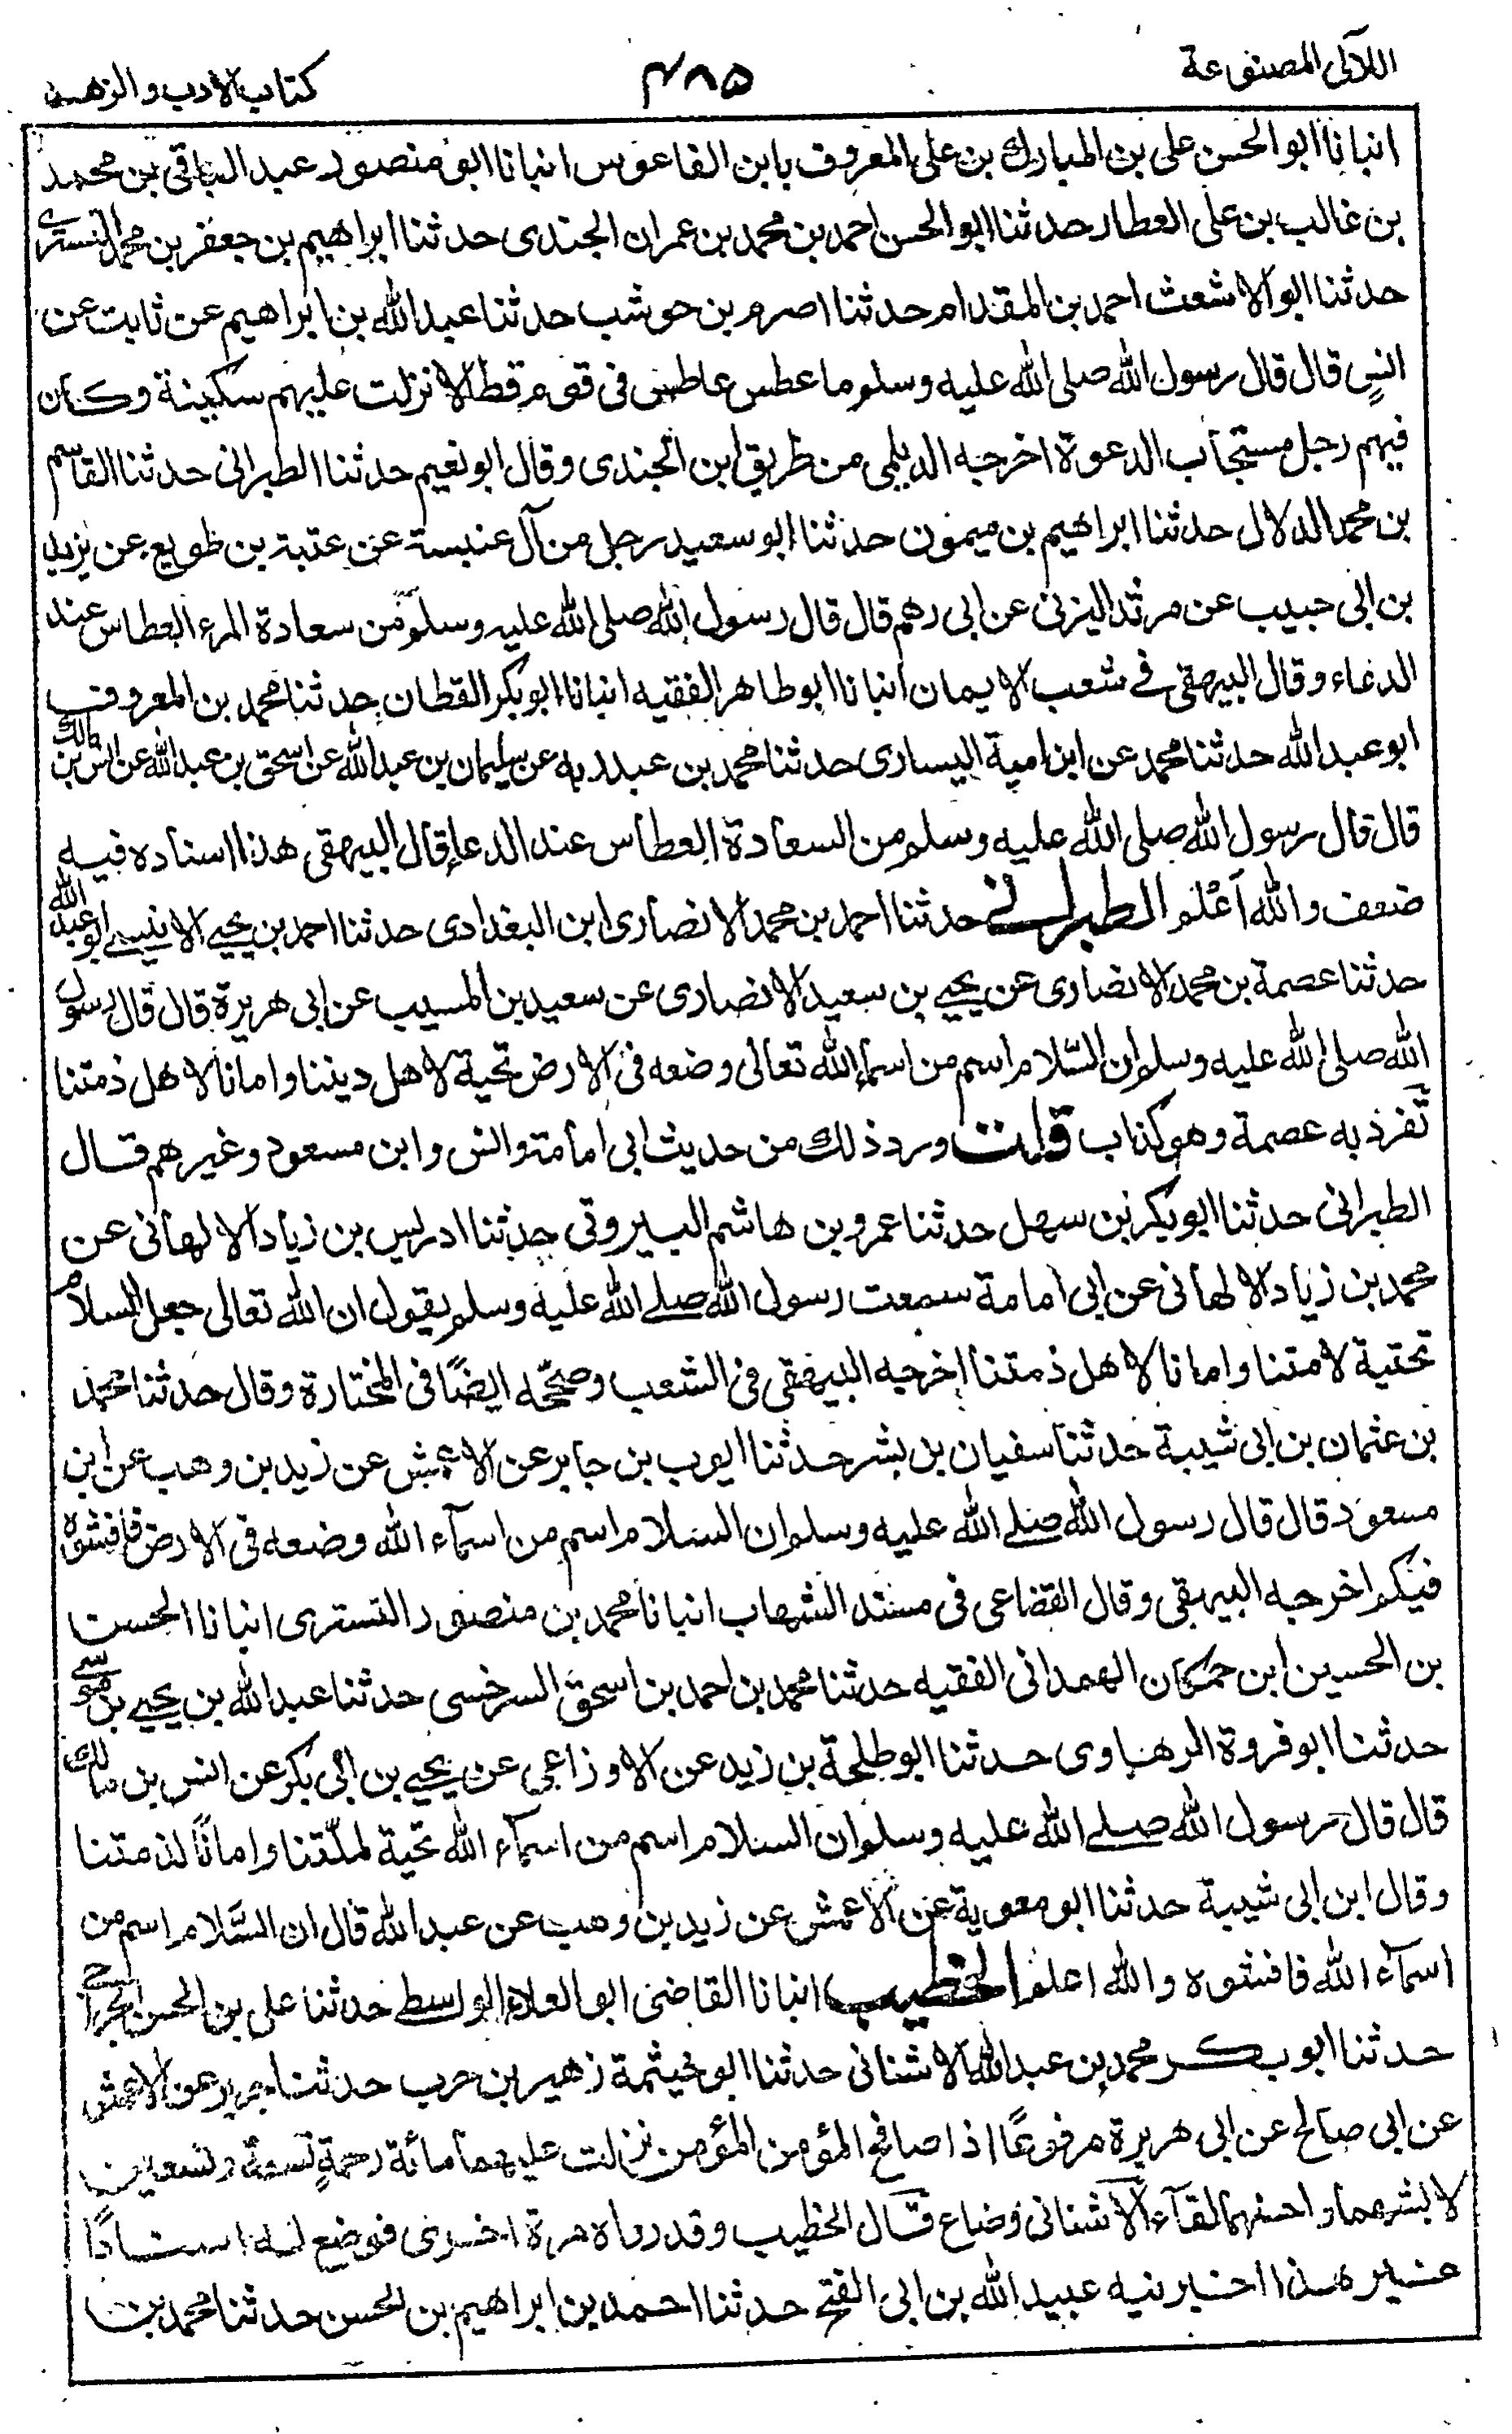 اللآلى المصنوعة
٤٨٥
كتاب الادب والزهد
انبانا ابو الحسن على بن المبارك بن على المعروف بابن الفاعوس انبانا ابو منصور عبد الباقى بن محمد
بن غالب بن على العطار حدثنا ابو الحسن احمد بن محمد بن عمران الجندى حدثنا ابراهيم بن جعفر بن محمد التسترى
حدثنا ابو الاشعث احمد بن المقدام حدثنا اصرم بن حوشب حدثنا عبد الله بن ابراهيم عن ثابت عن
انس قال قال رسول الله صلى الله عليه وسلم ما عطس عاطس فى قوم قط الا نزلت عليهم سكينة وكان
فيهم رجل مستجاب الدعوة اخرجه الديلمى من طريق ابن الجندى وقال ابو نعيم حدثنا الطبرانى حدثنا القاسم
بن محمد الدلال حدثنا ابراهيم بن ميمون حدثنا ابو سعيد رجل من آل عنبسة عن عتبة بن طويع عن يزيد
بن ابى حبيب عن مرثد اليزنى عن ابى رهم قال قال رسول الله صلى الله عليه وسلم من سعادة المرء العطاس عند
الدعاء وقال البيهقى فے شعب الايمان انبانا ابو طاهر الفقيه انبانا ابو بكر القطان حدثنا محمد بن المعروف
ابو عبد الله حدثنا محمد عن ابن امية اليسارى حدثنا محمد بن عبد ربه عن سليمان بن عبد الله عن اسحق بن عبد الله عن انس بن مالك
قال قال رسول الله صلى الله عليه وسلم من السعادة العطاس عند الدعا قال البيهقى هذا اسناده فيه
ضعف والله اَعْلم الطبرانے حدثنا احمد بن محمد الانصارى ابن البغدادى حدثنا احمد بن يحيے الانيسے ابو عبد الله
حدثنا عصمة بن محمد الانصارى عن يحيے بن سعيد الانصارى عن سعيد بن المسيب عن ابى هريرة قال قال رسول
الله صلى الله عليه وسلم ان السّلام اسم من اسماء الله تعالى وضعه فى الارض تحية لاهل ديننا وامانا لاهل ذمتنا
تفرد به عصمة وهو كذاب قلت ورد ذلك من حديث ابى امامة وانس وابن مسعود وغيرهم قال
الطبرانى حدثنا ابو بكر بن سهل حدثنا عمرو بن هاشم البيروتى حدثنا ادريس بن زياد الالهانى عن
محمد بن زياد الالهانى عن ابى امامة سمعت رسول الله صلے الله عليه وسلم يقول ان الله تعالى جعل السلام
تحتية لامتنا وامانا لاهل ذمتنا اخرجه البيهقى فى الشعب وصحّحه ايضًا فى المختارة وقال حدثنا محمد
بن عثمان بن ابى شيبة حدثنا سفيان بن بشر حدثنا ايوب بن جابر عن الاعمش عن زيد بن وهب عن ابن
مسعود قال قال رسول الله صلے الله عليه وسلم ان السلام اسم من اسمآء الله وضعه فى الارض فافشوه
فيكم اخرجه البيهقى وقال القضاعى فى مسند الشهاب انبانا محمد بن منصور التسترى انبانا الحسن
بن الحسين ابن حمكان الهمدانى الفقيه حدثنا محمد بن احمد بن اسحق السرخسى حدثنا عبد الله بن يحيے بن موسے
حدثنا ابو فروة الرهاوى حدثنا ابو طلحة بن زيد عن الاوزاعى عن يحيے بن ابى بكر عن انس بن مالك
قال قال رسول الله صلے الله عليه وسلم ان السلام اسم من اسمآء الله تحية لملّتنا وامانًا لذمتنا
وقال ابن ابى شيبة حدثنا ابو معوية عن الاعمش عن زيد بن وهب عن عبد الله قال ان السَّلام اسم من
اسمآء الله فافشوه والله اعلم الخطيب انبانا القاضى ابو العلاء الواسطے حدثنا على بن الحسن الجراحے
حدثنا ابو بكر محمد بن عبد الله الاشنانى حدثنا ابو خيثمة زهير بن حرب حدثنا جرير عن الاعمش
عن ابى صالح عن ابى هريرة مرفوعًا اذا صافح المؤمن المؤمن نزلت عليهما مائة رحمةٍ تسعة وتسعين
لابشهما واحسنهما لقآء الاشنانى وضاع قال الخطيب وقد رواه مرة اخرى فوضع له اسنادًا
غير هذا اخبرنيه عبيد الله بن ابى الفتح حدثنا احمد بن ابراهيم بن الحسن حدثنا محمد بن